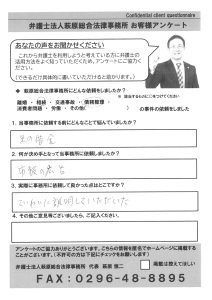 Confidential client questionnaire
弁護士法人萩原総合法律事務所 お客様アンケート
あなたの声をお聞かせください
これから弁護士を利用しようと考えている方に弁護士の
活用方法をよく知っていただくため、アンケートにご協力く
ださい。
(できるだけ具体的に書いていただけると助かります。)
● 萩原総合法律事務所にどんな依頼をしましたか?
離婚 ・ 相続 ・ 交通事故 ・ 債務整理
消費者問題 ・ 労働 ・ その他( )の事件を依頼をしました
1. 当事務所に依頼する前にどんなことで悩んでいましたか?
2. 何が決め手となって当事務所に依頼しましたか?
市報の広告
3. 実際に事務所に依頼して良かった点はどこですか?
ていねいに説明していただいた
4. その他ご意見等ございましたら、ご記入ください。
アンケートのご協力ありがとうございます。こちらの情報を匿名でホームページに掲載する
ことがございます。(不許可の方は下記にチェックをお願いします)
弁護士法人萩原総合法律事務所 代表 萩原 慎二
掲載は控えてほしい
FAX:0296-48-8895